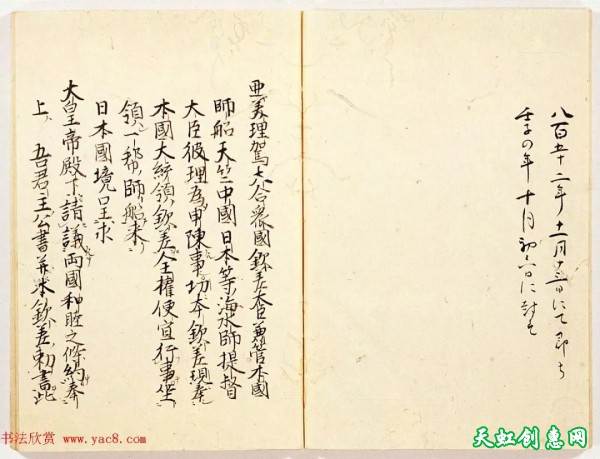 八百五十二年十一月十三日にて即ち
壬子の年十月初
亜美理駕大合衆國欽差大臣兼管本國
師船天竺中國日本等海水師提督
大臣彼理為申陳事切本欽差現奉
本國大統領欽差全權便宜行事坐
領一幇師船来
日本國境口呈求
大皇帝殿下請議兩國和睦之條約奉
上吾君主公書并本欽差勅書此
书法欣赏 www.yac8.com
天虹创惠网